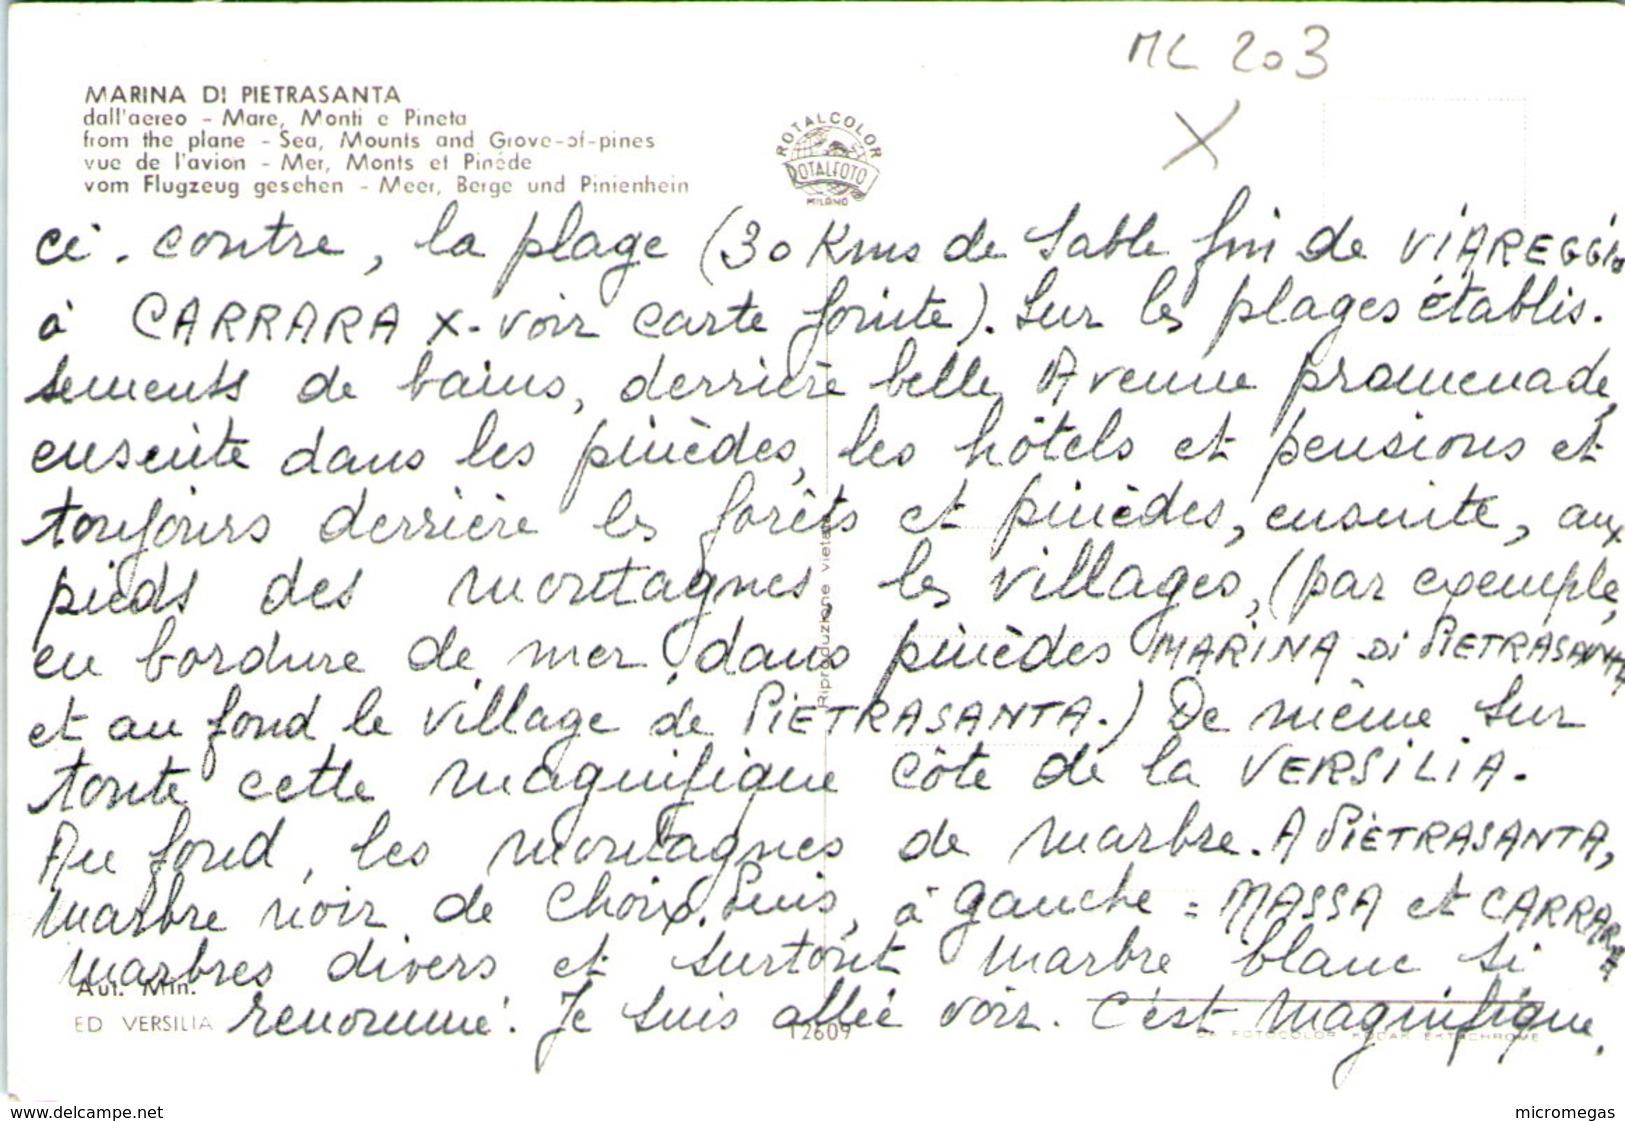 ML 203
X
MARINA DI PIETRASANTA
dall'aereo - Mare, Monti e Pineta
from the plane - Sea, Mounts and Grove-of-pines
vue de l'avion - Mer, Monts et Pinède
vom Flugzeug gesehen - Meer, Berge und Pinienhein
ROTALCOLOR
ROTALFOTO
MILANO
ci. contre, la plage (30 Kms de sable fin de VIAREGGIO
à CARRARA X - voir carte jointe). Sur les plages établis.
sements de bains, derrière belle Avenue promenade,
ensuite dans les pinèdes, les hôtels et pensions et
toujours derrière les forêts et pinèdes, ensuite, aux
pieds des montagnes les villages, (par exemple,
en bordure de mer, dans pinèdes MARINA DI PIETRASANTA
et au fond le village de PIETRASANTA.) De même sur
toute cette magnifique côte de la VERSILIA.
Au fond, les montagnes de marbre. A PIETRASANTA,
marbre noir de choix. Puis, à gauche = MASSA et CARRARA
marbres divers et surtout marbre blanc si
renommé. Je suis allée voir. C'est magnifique.
Riproduzione vietata
Aut. Min.
ED VERSILIA
12609
DA FOTOCOLOR KODAK EKTACHROME
www.delcampe.net
micromegas